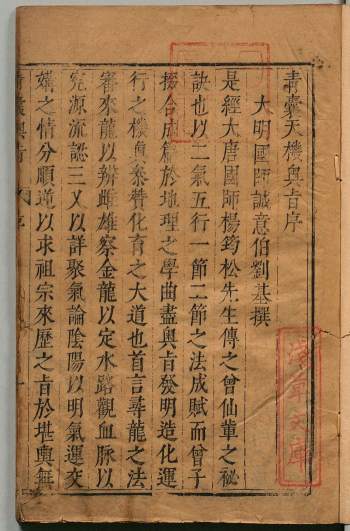 青囊天機奥旨序
大明國師誠意伯劉基撰
是經大唐國師楊筠松先生傳之曾仙輩之秘
訣也以二氣五行一節二節之法成賦而曾子
授合成篇於地理之學曲盡奥旨發明造化運
行之機與叅賛化育之大道也首言尋龍之法
審來龍以辨雌雄察金龍以定水路觀血脉以
究源流認三义以詳聚氣論陰陽以明氣運交
媾之情分順逆以求祖宗來歴之旨於堪輿無
青囊奥旨 序